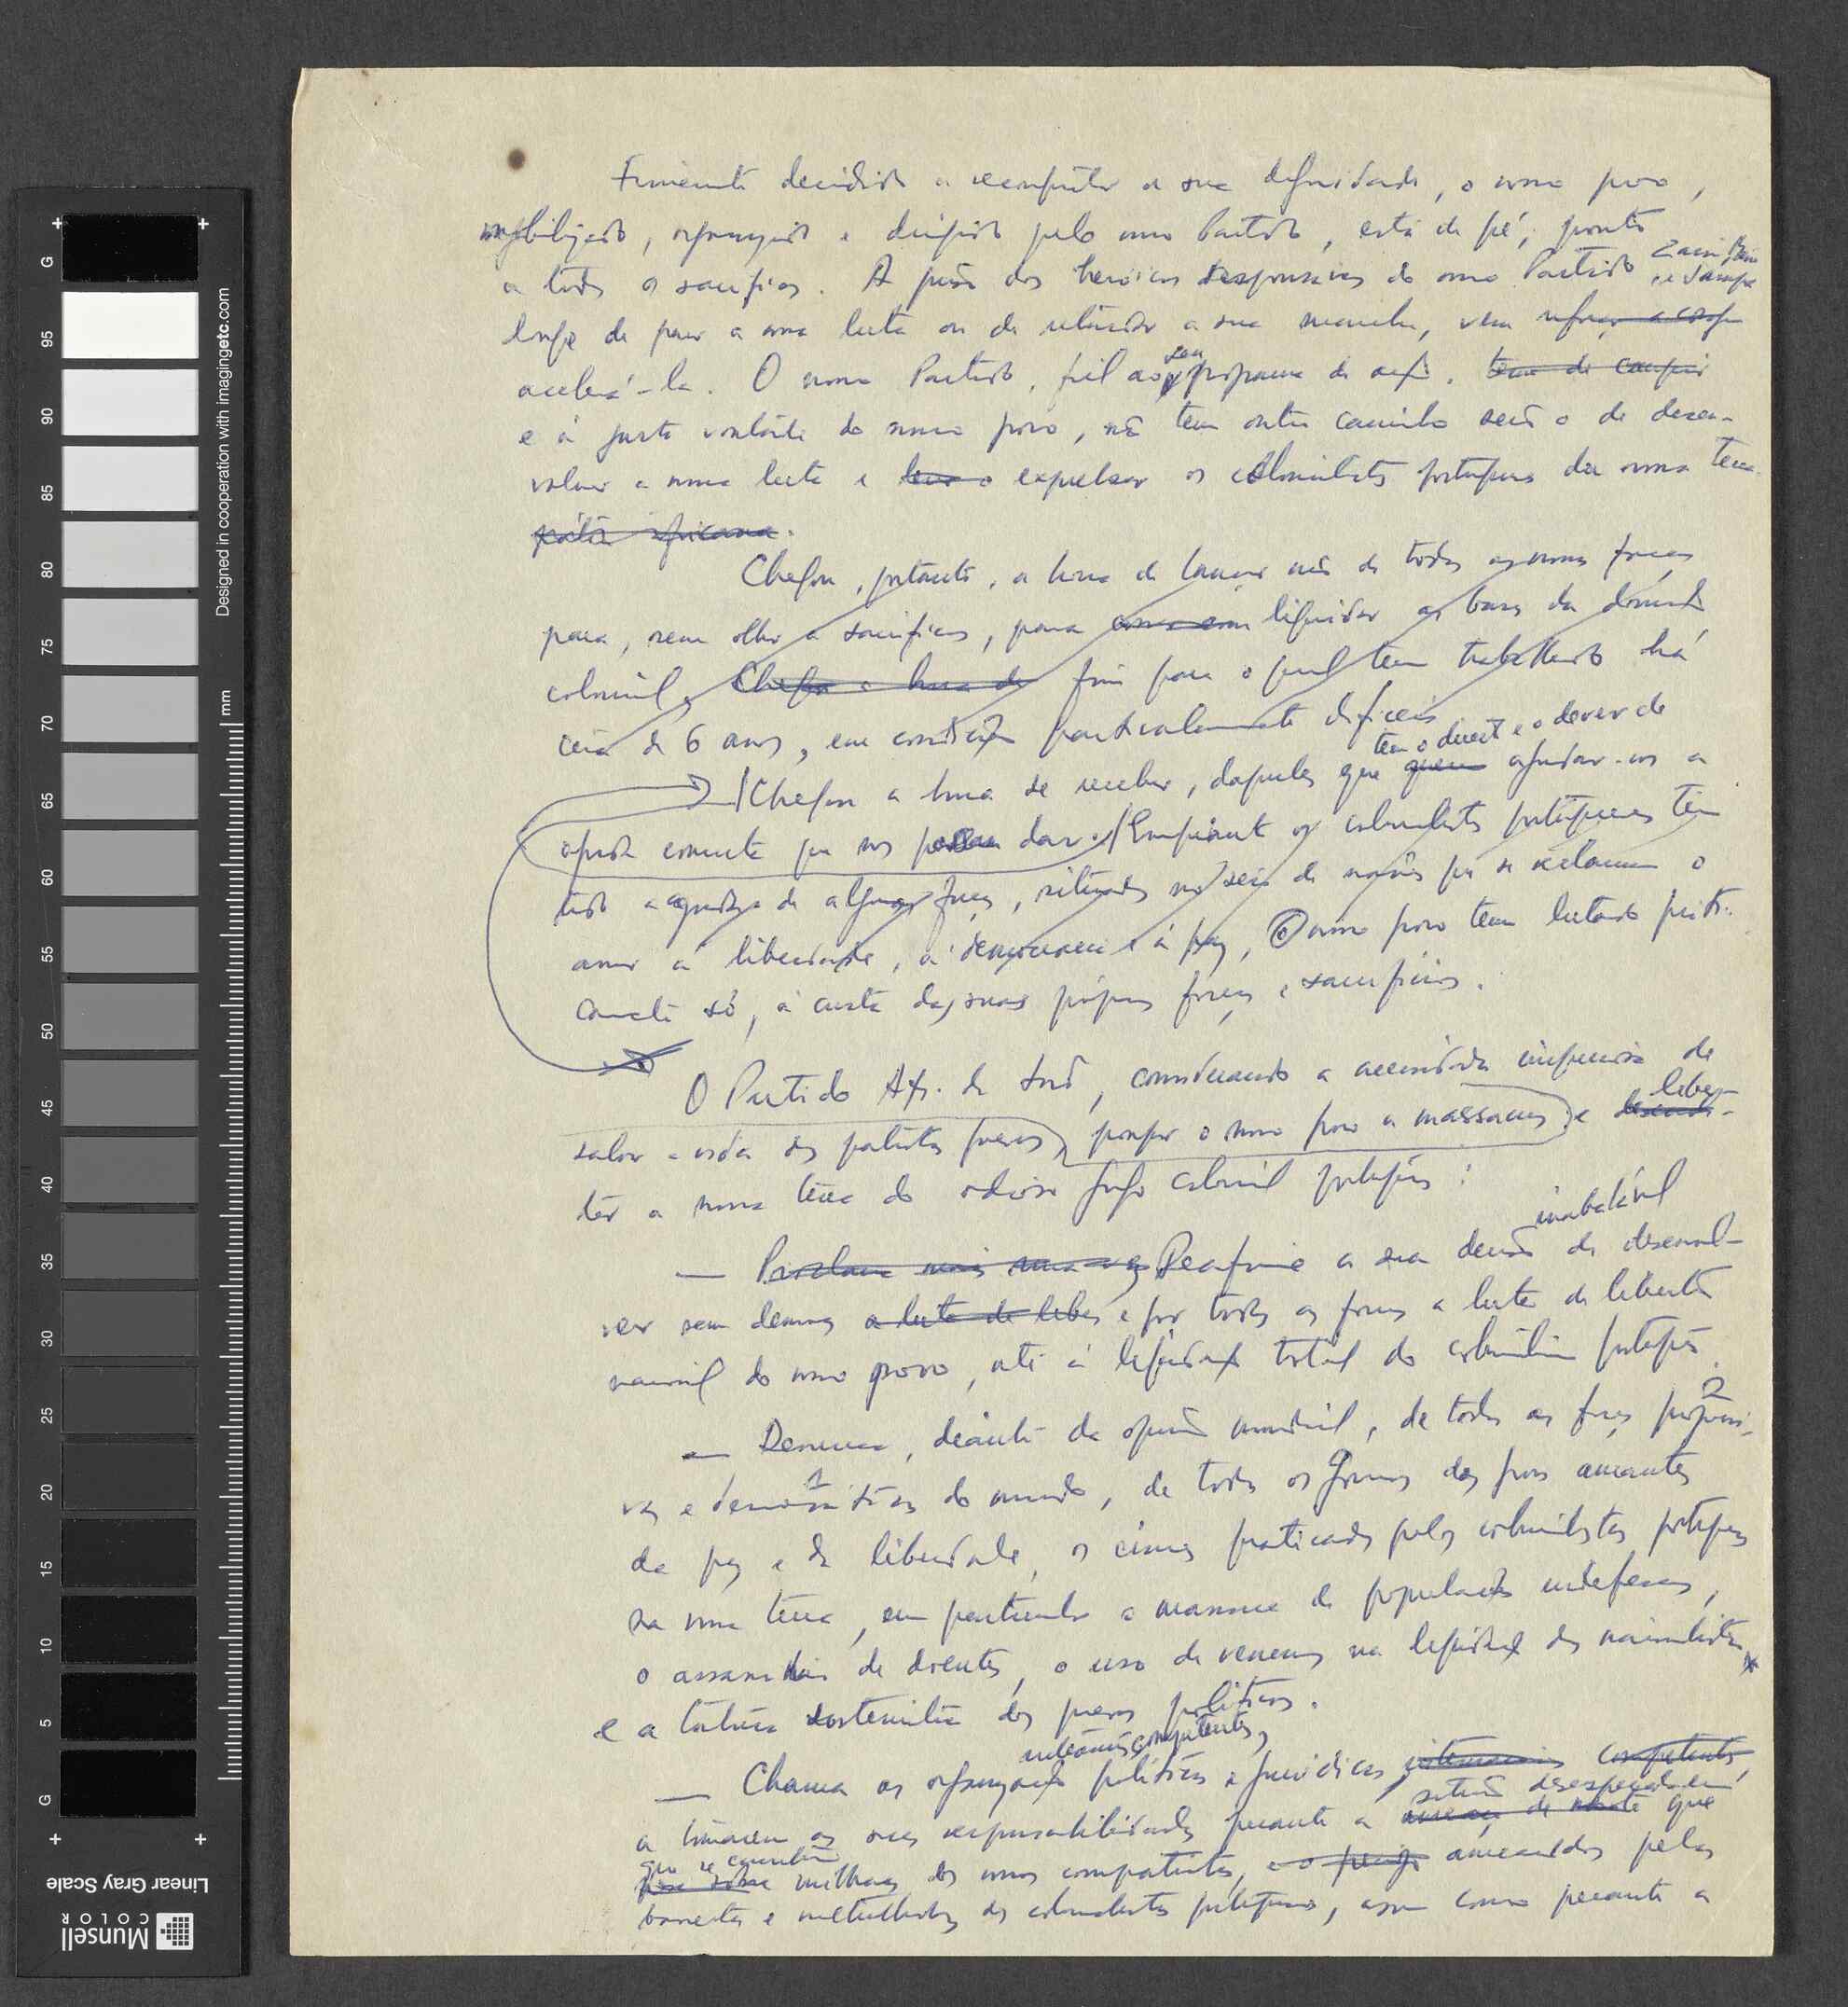 Firmemente decidido a reconquistar a sua dignidade, o nosso povo,
mobilizado, organizado e dirigido pelo nosso Partido, está de pé, pronto
a todos os sacrifícios. A prisão dos heroicos responsáveis do nosso Partido
longe de parar a nossa luta ou de retardar a sua marcha, vem
acelerá-la. O nosso Partido, fiel ao seu programa de acção, tem de cumprir
e à justa vontade do nosso povo, não tem outro caminho senão o de desen-
volver a nossa luta e expulsar os colonialistas portugueses da nossa terra
pátria africana.
Chegou, portanto, a hora de lançar mão de todas as nossas forças
para, sem olhar a sacrifícios, para liquidar as bases da dominação
colonial, Chegou a hora de fim para o qual tem trabalhado há
cerca de 6 anos, em condições particularmente difíceis
tem o direito e o dever de
Chegou a hora de receber, daqueles que querem ajudar-nos a
ajuda concreta que nos possam dar. Enquanto os colonialistas portugueses têm
tido a ajuda de algumas forças, situadas no seio de nações que se reclamam o
amor à liberdade, à democracia e à paz, o nosso povo tem lutado prati-
camente só, à custa das suas próprias forças e sacrifícios.
O Partido Afr. da Ind, considerando a necessidade imperiosa de
liber-
salvar a vida dos patriotas presos, poupar o nosso povo a massacres e
tar a nossa terra do odioso jugo colonial português:
inabalável
— Proclama mais uma vez Reafirma a sua decisão de desenvol-
ver sem demora a luta de liber e por todas as formas a luta de libertação
nacional do nosso povo, até à liquidação total do colonialismo português.
— Denuncia, diante da opinião mundial, de todas as forças progressi-
vas e democráticas do mundo, de todos os governos dos povos amantes
da paz e da liberdade, os crimes praticados pelos colonialistas portugueses
na nossa terra, em particular o massacre de populações indefesas,
o assassínio de doentes, o uso de venenos na liquidação dos nacionalistas
e a tortura sistemática dos presos políticos.
internacionais competentes,
— Chama as organizações políticas e jurídicas, internacionais competentes,
situação desesperada em
a tomarem as suas responsabilidades perante a ameaça de morte que
que se encontram
pesa sobre milhares dos nossos compatriotas, e o perigo ameaçados pelas
baionetas e metralhadoras dos colonialistas portugueses, assim como perante a
Designed in cooperation with imagingetc.com
mm
G
95
90
85
80
75
70
65
60
55
50
45
40
35
30
25
20
15
10
5
G
Linear Gray Scale
Munsell
COLOR